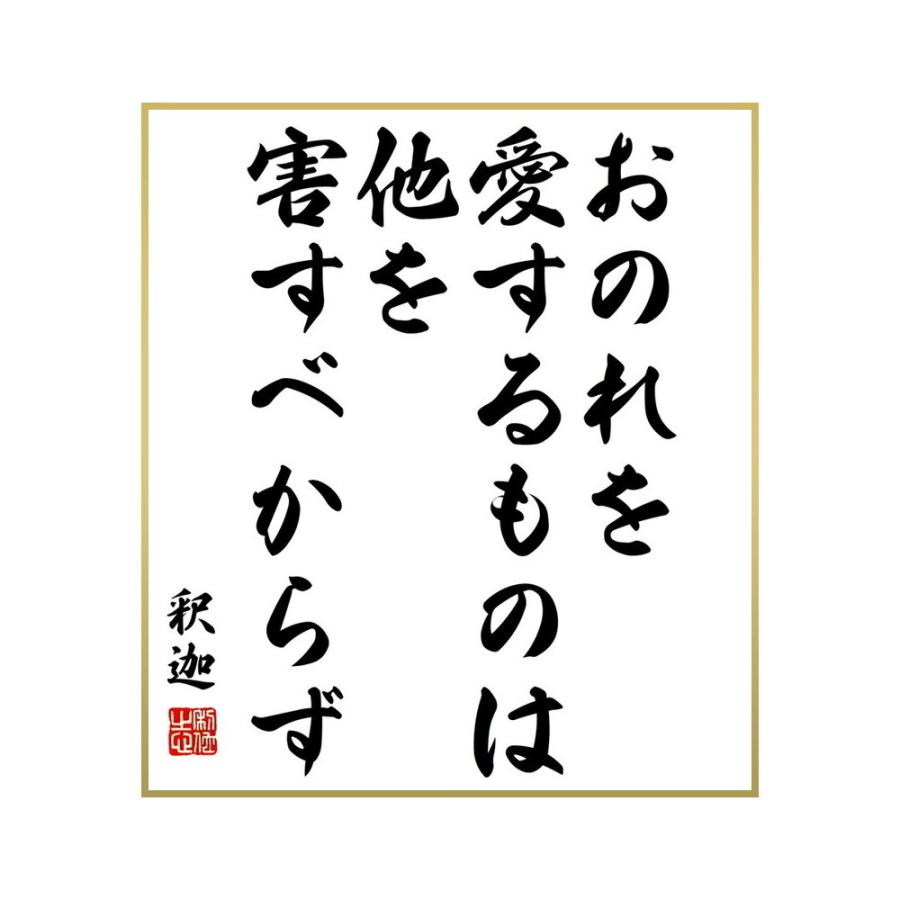 おのれを
愛するものは
他を
害すべからず
釈迦